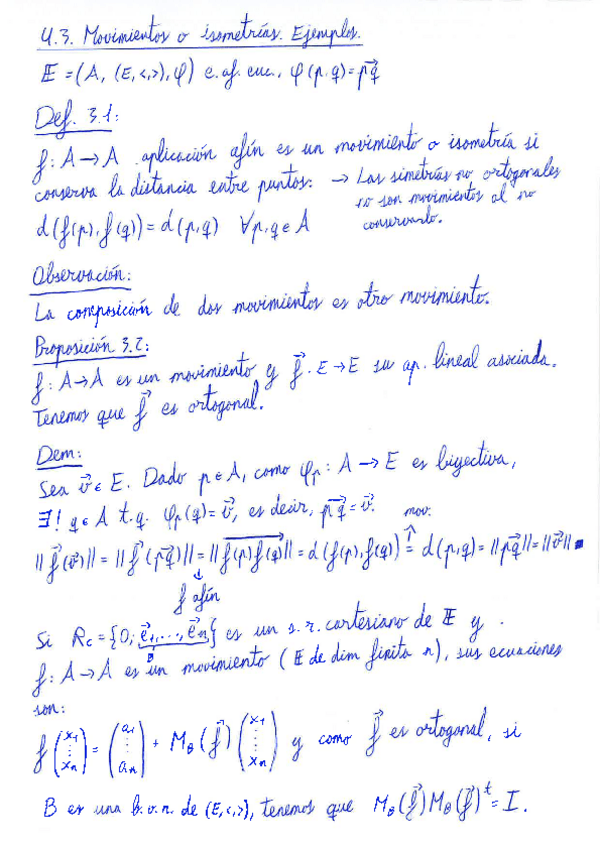 4.3. Movimientos o isometrías. Ejemplos.
𝔼 = (A, (E, <,>), φ) e. af. euc., φ(p,q) = p⃗q
Def. 3.1:
f: A → A aplicación afín es un movimiento o isometría si
conserva la distancia entre puntos: → Las simetrías no ortogonales
no son movimientos al no
conservarlo.
d(f(p), f(q)) = d(p,q) ∀p,q ∈ A
Observación:
La composición de dos movimientos es otro movimiento.
Proposición 3.2:
f: A → A es un movimiento y f⃗: E → E su ap. lineal asociada.
Tenemos que f⃗ es ortogonal.
Dem:
Sea v⃗ ∈ E. Dado p ∈ A, como φₚ: A → E es biyectiva,
∃! q ∈ A t.q. φₚ(q) = v⃗, es decir, p⃗q = v⃗.
mov.
||f⃗(v⃗)|| = ||f⃗(p⃗q)|| = ||f(p)f(q)|| = d(f(p), f(q)) = d(p,q) = ||p⃗q|| = ||v⃗|| ■
f afín
Si R_c = {0; e⃗₁, ..., e⃗ₙ} es un s.r. cartesiano de 𝔼 y
B
f: A → A es un movimiento (𝔼 de dim finita n), sus ecuaciones
son:
f(x₁ ⋮ xₙ) = (a₁ ⋮ aₙ) + M_B(f⃗)(x₁ ⋮ xₙ) y como f⃗ es ortogonal, si
B es una b.o.n. de (E, <,>), tenemos que M_B(f⃗) M_B(f⃗)ᵗ = I.